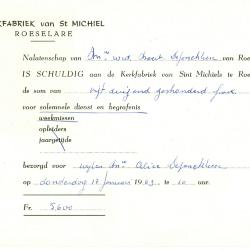 KFABRIEK van St MICHIEL
ROESELARE
Nalatenschap van Wwe van Roe
IS SCHULDIG aan de Kerkfabriek van Sint Michiels te Roese
de som van vijf duizend zeshonderd frank
voor solemnele dienst en begrafenis
weekmissen
opleiders
jaargetijde
bezorgd voor wijlen Alice
op donderdag 17 januari 1963 te 10 uur.
Fr. 5.600